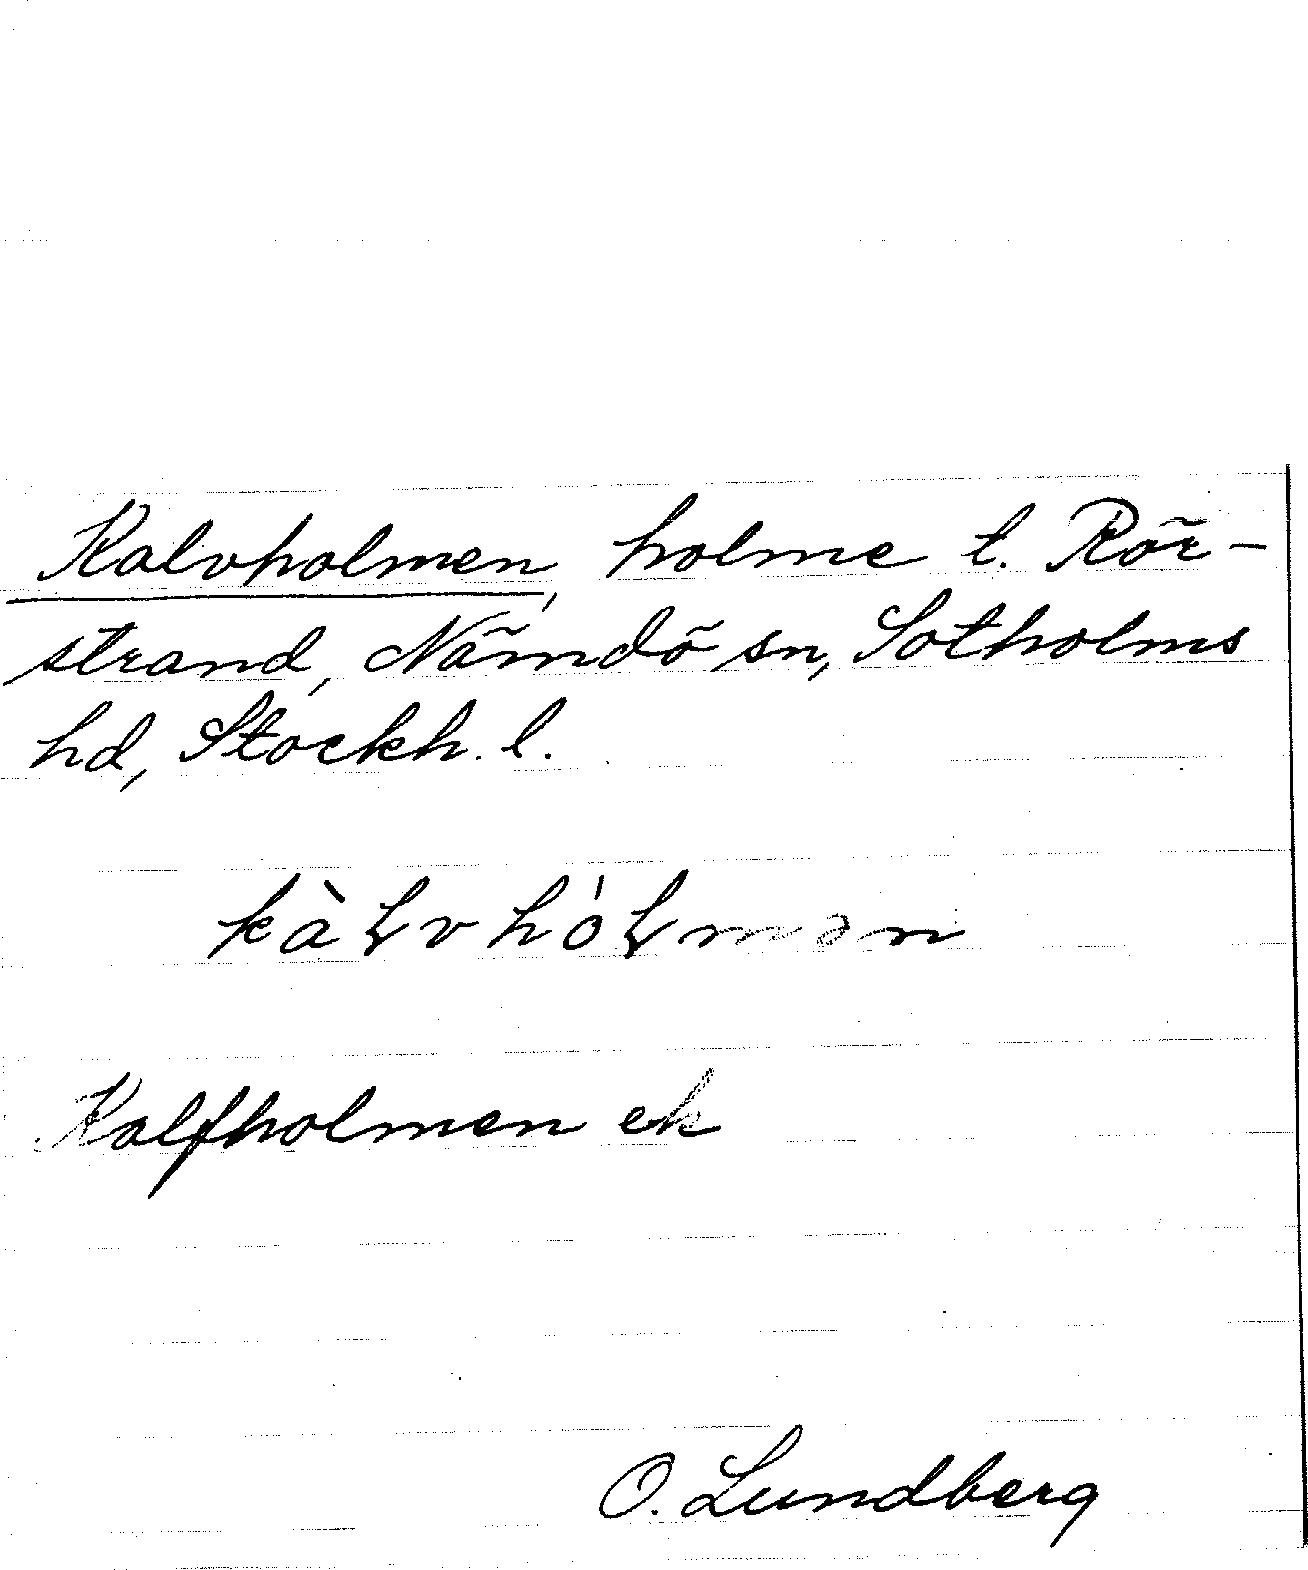 Kalvholmen, holme t. Rör-
strand, Nämdö sn, Sotholms
hd, Stockh. l.
kàɫvhóɫmən
Kalfholmen ek
O. Lundberg